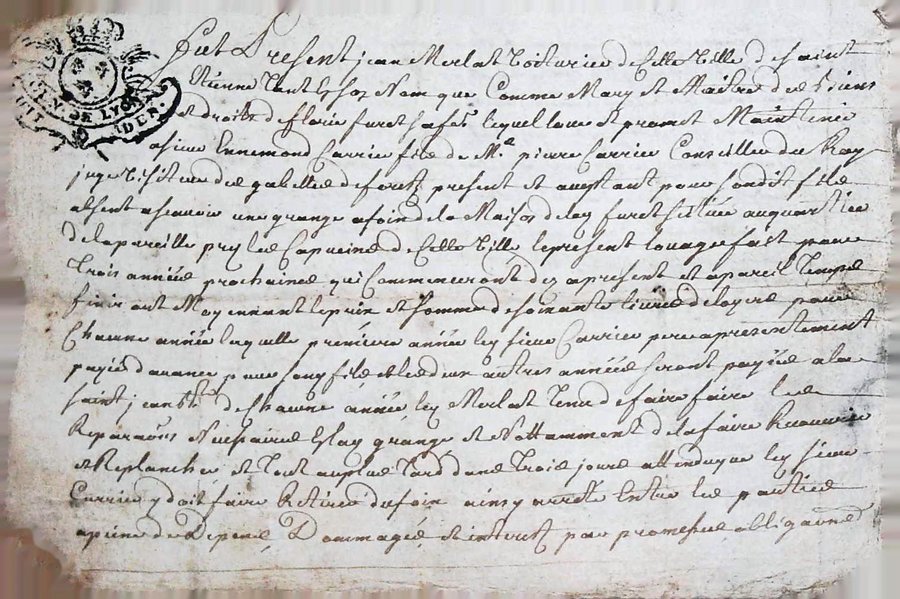 GEN. DE LYON
DEN.
Fut Present jean Merlat Voiturier de cette Ville de saint
Etienne tant En son Nom que Comme Mary et Maitre des Biens
et droits de florie furet sa fe. lequel loue et promet Maintenir
a sieur Ennemond Carrier fils de Me. pierre Carrier Conseiller du Roy
juge Visiteur des gabelles de forest present et acceptant pour sondit fils
absent a scavoir une grange a foin de la Maison de la furet scituée au quartier
de la pareille pry les Capucins de cette Ville le present louage fait pour
Trois années prochaines qui Commenceront dez a present et a pareil Temps
finiront Moyennant le prix et somme de soixante livres de loyer pour
Chacune année laquelle premiere année ley sieur Carrier pere a presentement
payé d'avance pour son fils et les deux autres années seront payées a la
saint jean Bte de chacune année ley Merlat Tenu de faire faire les
Reparaons Necessaires En lay grange et Nottamment de la faire Recouvrir
et Replancher et Tout au plus Tard dans Trois jours attendu que ley sieur
Carrier y doit faire Retirer du foin ainsy arreté Entre les parties
a peine de Depens, Dommages, et interest par promesses, obligaons